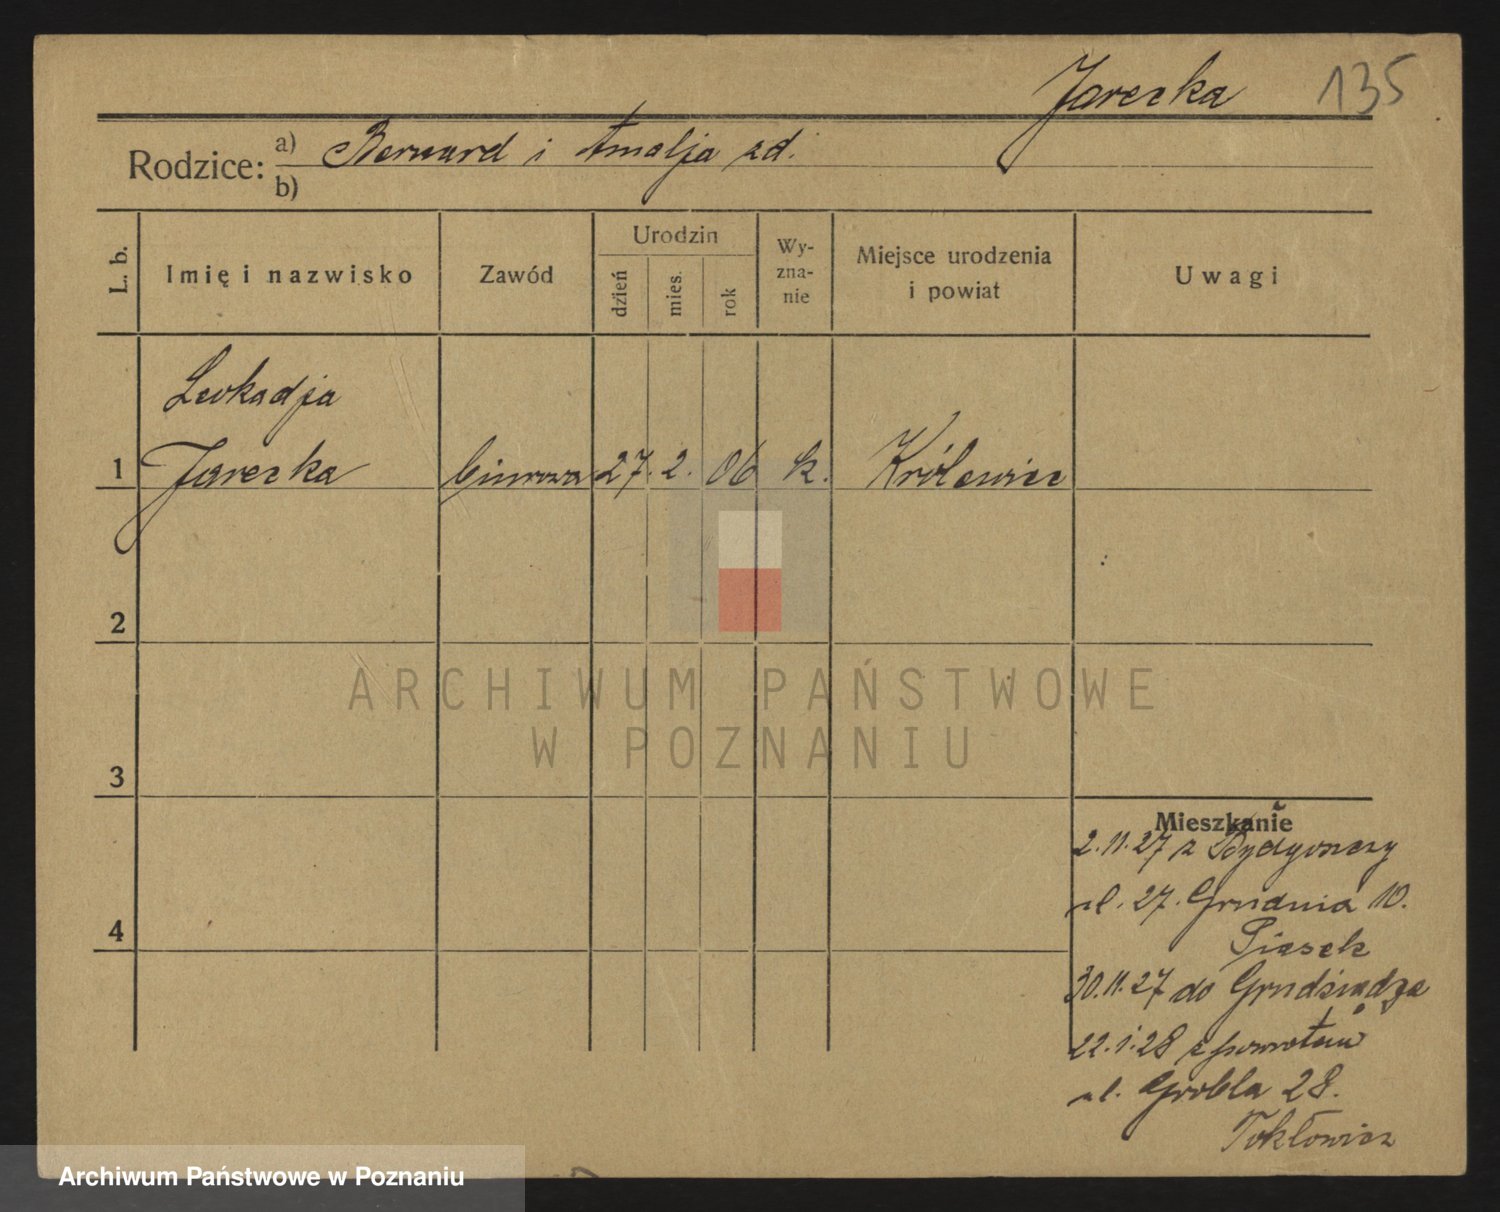 Jarecka 135
Rodzice: a) Bernard i Amalja zd.
b)
L. b.
Imię i nazwisko
Zawód
Urodzin
dzień
mies.
rok
Wy-
zna-
nie
Miejsce urodzenia
i powiat
Uwagi
Leokadja
1 Jarecka biurowa 27. 2. 06 k. Królewiec
2
ARCHIWUM PAŃSTWOWE
W POZNANIU
3
Mieszkanie
2.11.27 z Bydgoszczy
ul. 27. Grudnia 10.
4
Piasek
30.11.27 do Grudziądza
22.1.28 z powrotem
ul. Grobla 28.
Archiwum Państwowe w Poznaniu